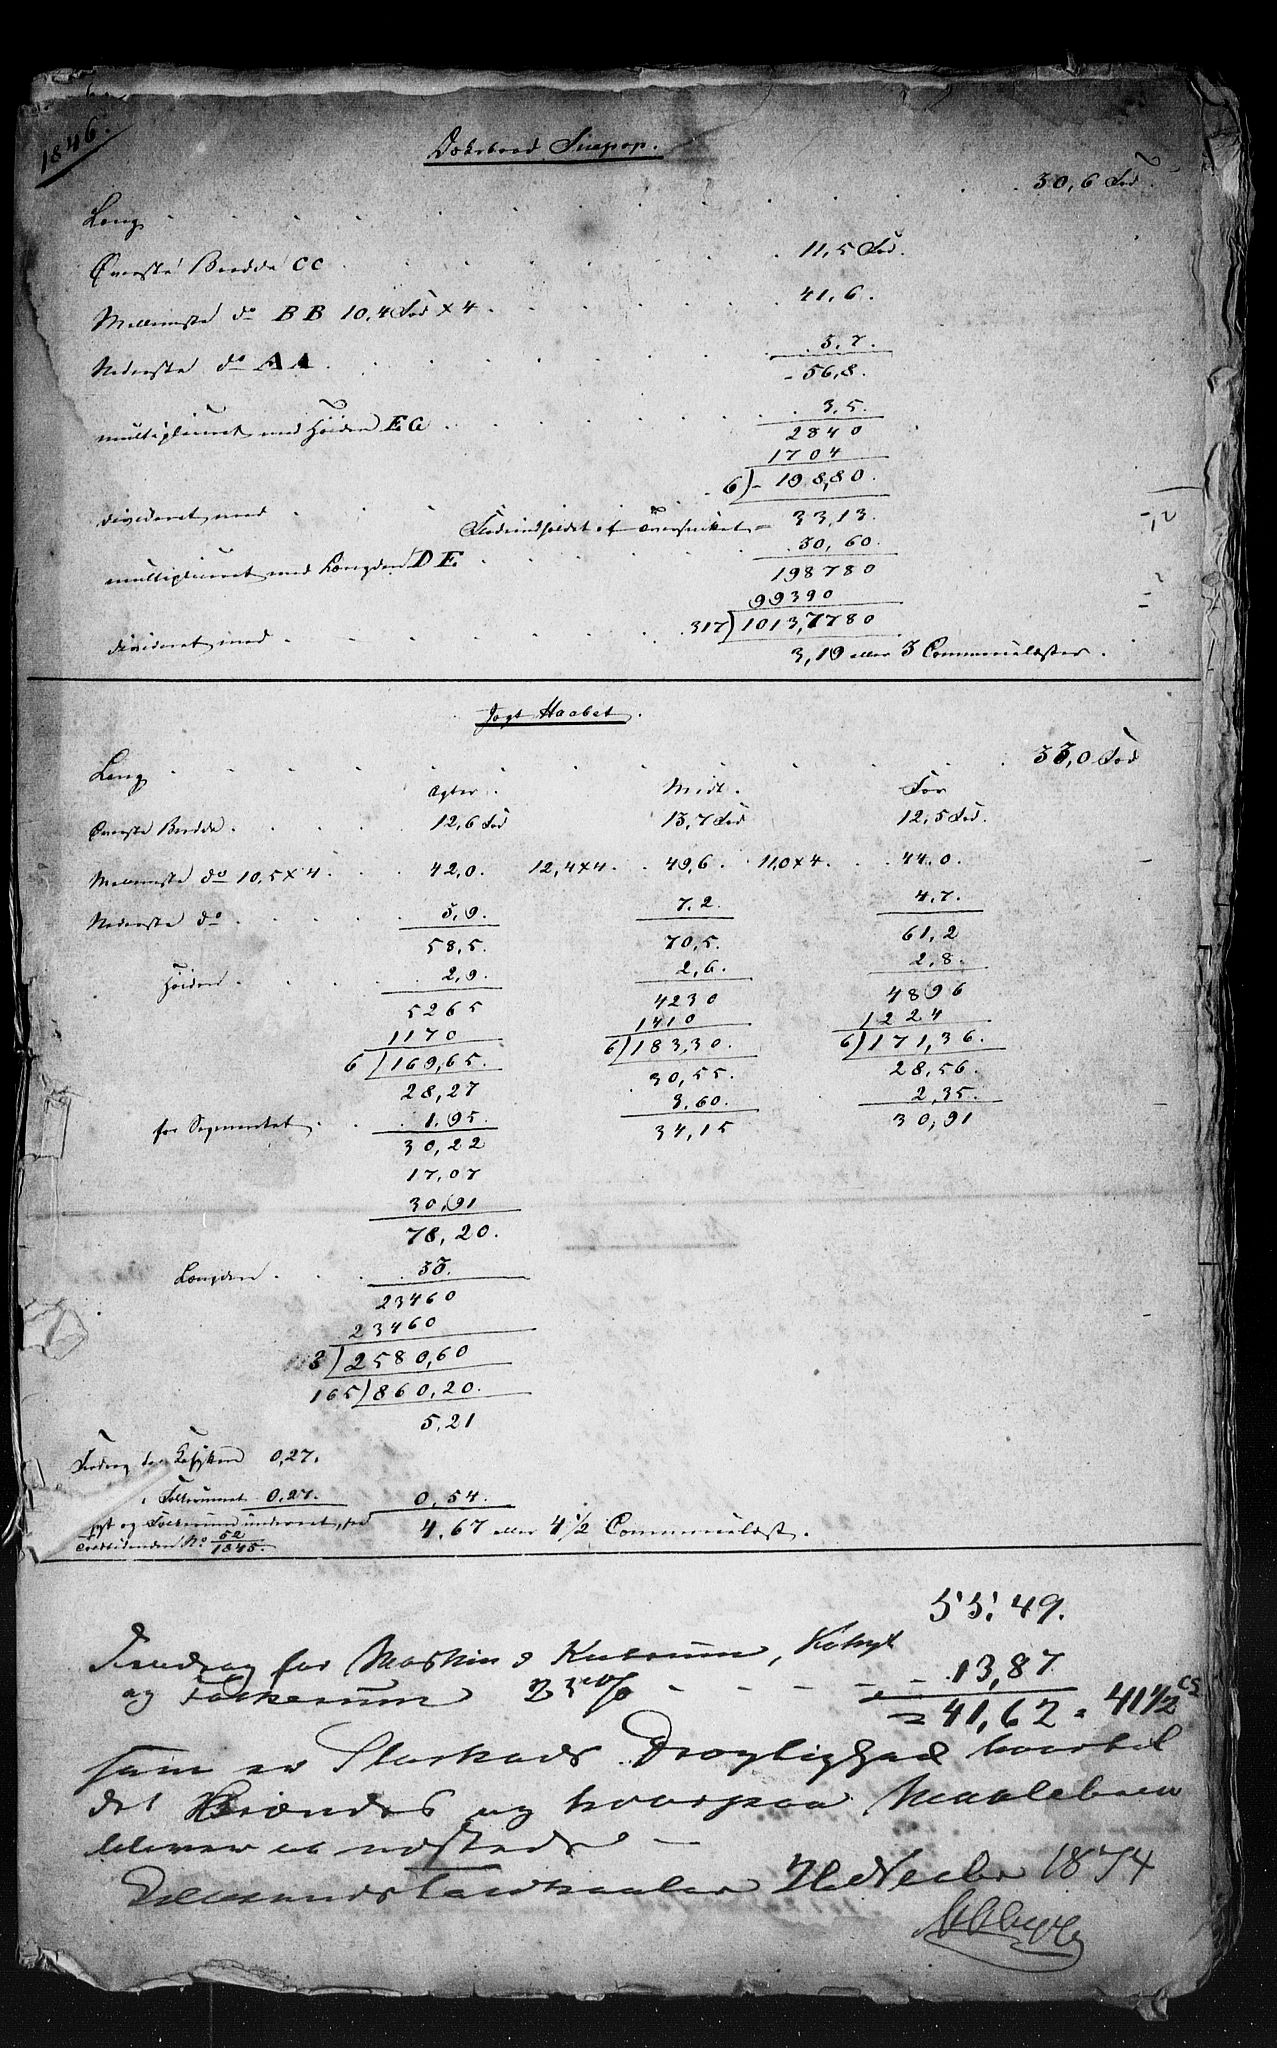 1846.
Dæksbaad Sinepop.
Læng . . . 30,6 Fod.
Øverste Bredde CC . . . 11,5 Fod.
Mellemste do BB 10,4 Fod × 4 . . . 41,6.
Nederste do AA . . . 3,7.
56,8.
multipliceret med Høiden EG . . . 3,5.
2840
1704
6) 198,80.
divideret med . . . Fladeindholdet af Tversnittet = 33,13.
multipliceret med Længden DE . . . 30,60.
198780
99390
317) 1013,7780
divideret med . . . 3,19 eller 3 Commercelæster.
Jagt Haabet.
Læng . . . 33,0 Fod
Agter. Midt. For
Øverste Bredde . . . 12,6 Fod 13,7 Fod 12,5 Fod.
Mellemste do 10,5 × 4 . . . 42,0. 12,4 × 4 . . 49,6. 11,0 × 4 . . 44,0.
Nederste do . . . 3,9. 7,2 4,7.
58,5. 70,5. 61,2
Høiden . . . 2,9. 2,6. 2,8.
5265 4230 4896
1170 1410 1224
6) 169,65. 6) 183,30. 6) 171,36.
28,27 30,55. 28,56.
for Segmentet . . 1,95. 3,60. 2,35.
30,22 34,15 30,91
17,07
30,91
78,20.
Længden . . . 33.
23460
23460
3) 2580,60
165) 860,20.
5,21
Fradrag for Kahytten 0,27.
" Folkerummet 0,27. 0,54.
og Folkerum
No 52/1845. 4,67 eller 4 1/2 Commercelæst.
55,49.
Fradrag for Maskin & Kulrum, Kahyt
og Folkerum 25 % - - - - 13,87
= 41,62 = 41 1/2 CL
som er Starkads Drægtighed hvortil
det Brændes og hvorpaa Maalebrev
bliver at udstede. -
1874